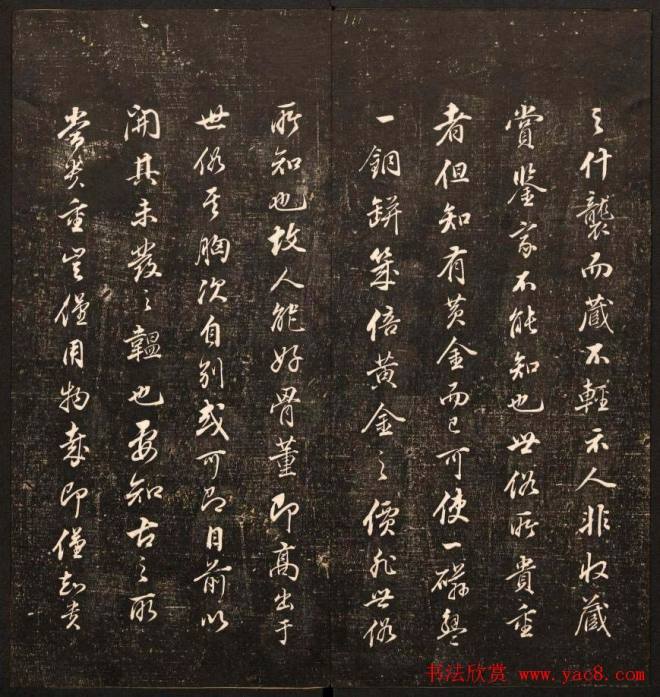 之什襲而藏不輕示人非收藏
賞鑒家不能知也世俗所貴重
者但知有黄金而已可使一磁盌
一銅缾幾倍黄金之價非世俗
所知也故人能好骨董即高出于
世俗其胸次自别或可即目前以
開其未發之韞也要知古之所
貴重豈僅用物哉即僅知貴
书法欣赏 www.yac8.com